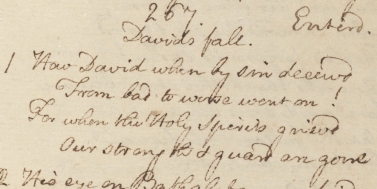 267
Enterd.
Davids fall.
1 How David when by sin deceivd
From bad to worse went on!
For when the Holy Spirit's grievd
Our strength & guard are gone
2 His eye on Bathsheba